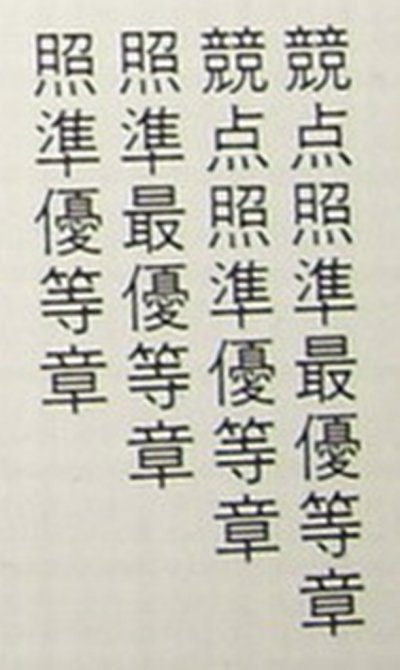 競点照準最優等章
競点照準優等章
照準最優等章
照準優等章